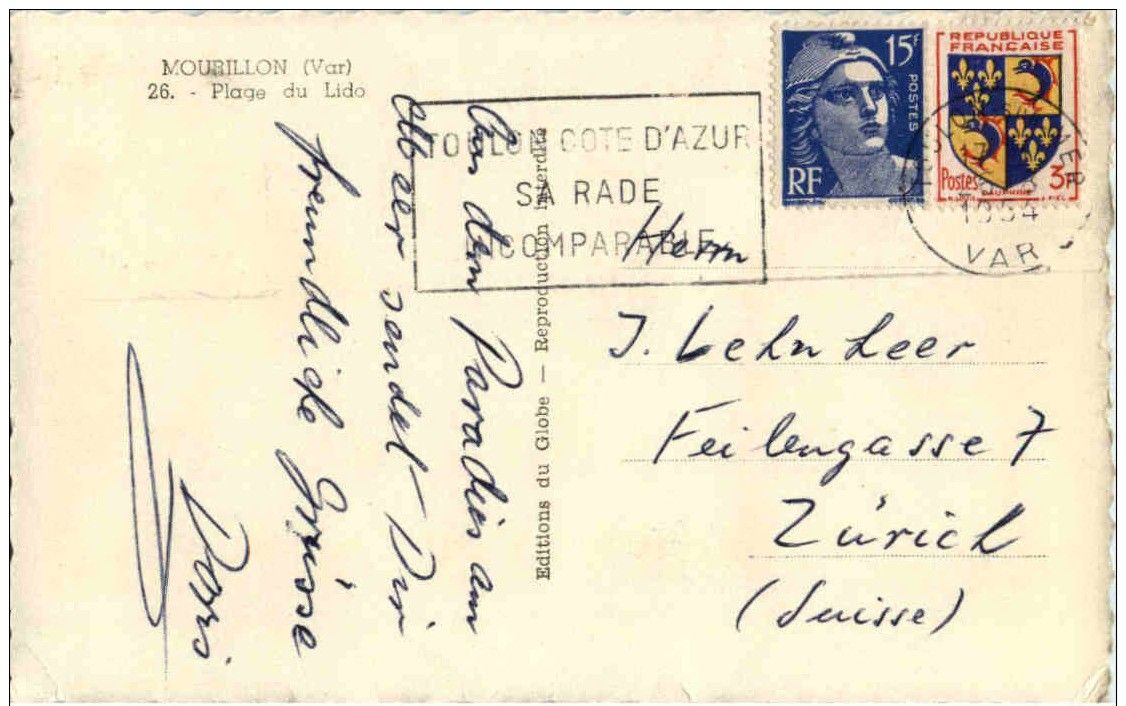 MOURILLON (Var)
26. - Plage du Lido
TOULON COTE D'AZUR
SA RADE
INCOMPARABLE
15F
POSTES
RF
REPUBLIQUE
FRANÇAISE
Postes 3F
DAUPHINE
1954
VAR
Aus dem Paradies am
Meer sendet Dir
freundliche Grüsse
Doris
Editions du Globe — Reproduction Interdite
Herrn
J. Lehnherr
Feilengasse 7
Zürich
(Suisse)